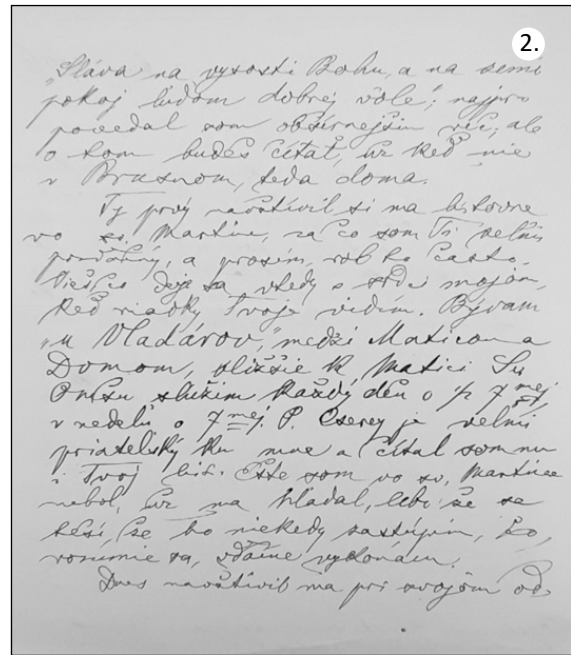 2.
„Sláva na vysosti Bohu, a na zemi
pokoj ľuďom dobrej vôle“; najprv
povedal som obšírnejšiu reč, ale
o tom budeš čítať, už keď nie
v Brusnom, teda doma.
Ty prvý navštívil si ma listovne
vo sv. Martine, za čo som Ti veľmi
povďačný, a prosím, rob to často.
Vieš čo deje sa vtedy v srdci mojom,
keď riadky Tvoje vidím. Bývam
„u Vladárov“, medzi Maticou a
Domom, bližšie k Matici Sv.
Omšu slúžim každý deň o 1/2 7 mej,
v nedeľu o 7 mej. P. Cserey je veľmi
priateľský ku mne a čítal som mu
i Tvoj list. Ešte som vo sv. Martine
nebol, už ma hľadal, lebo že sa
teší, že ho niekedy zastúpim, čo,
rozumie sa, vďačne vykonám.
Dnes navštívil ma pri svojom od-